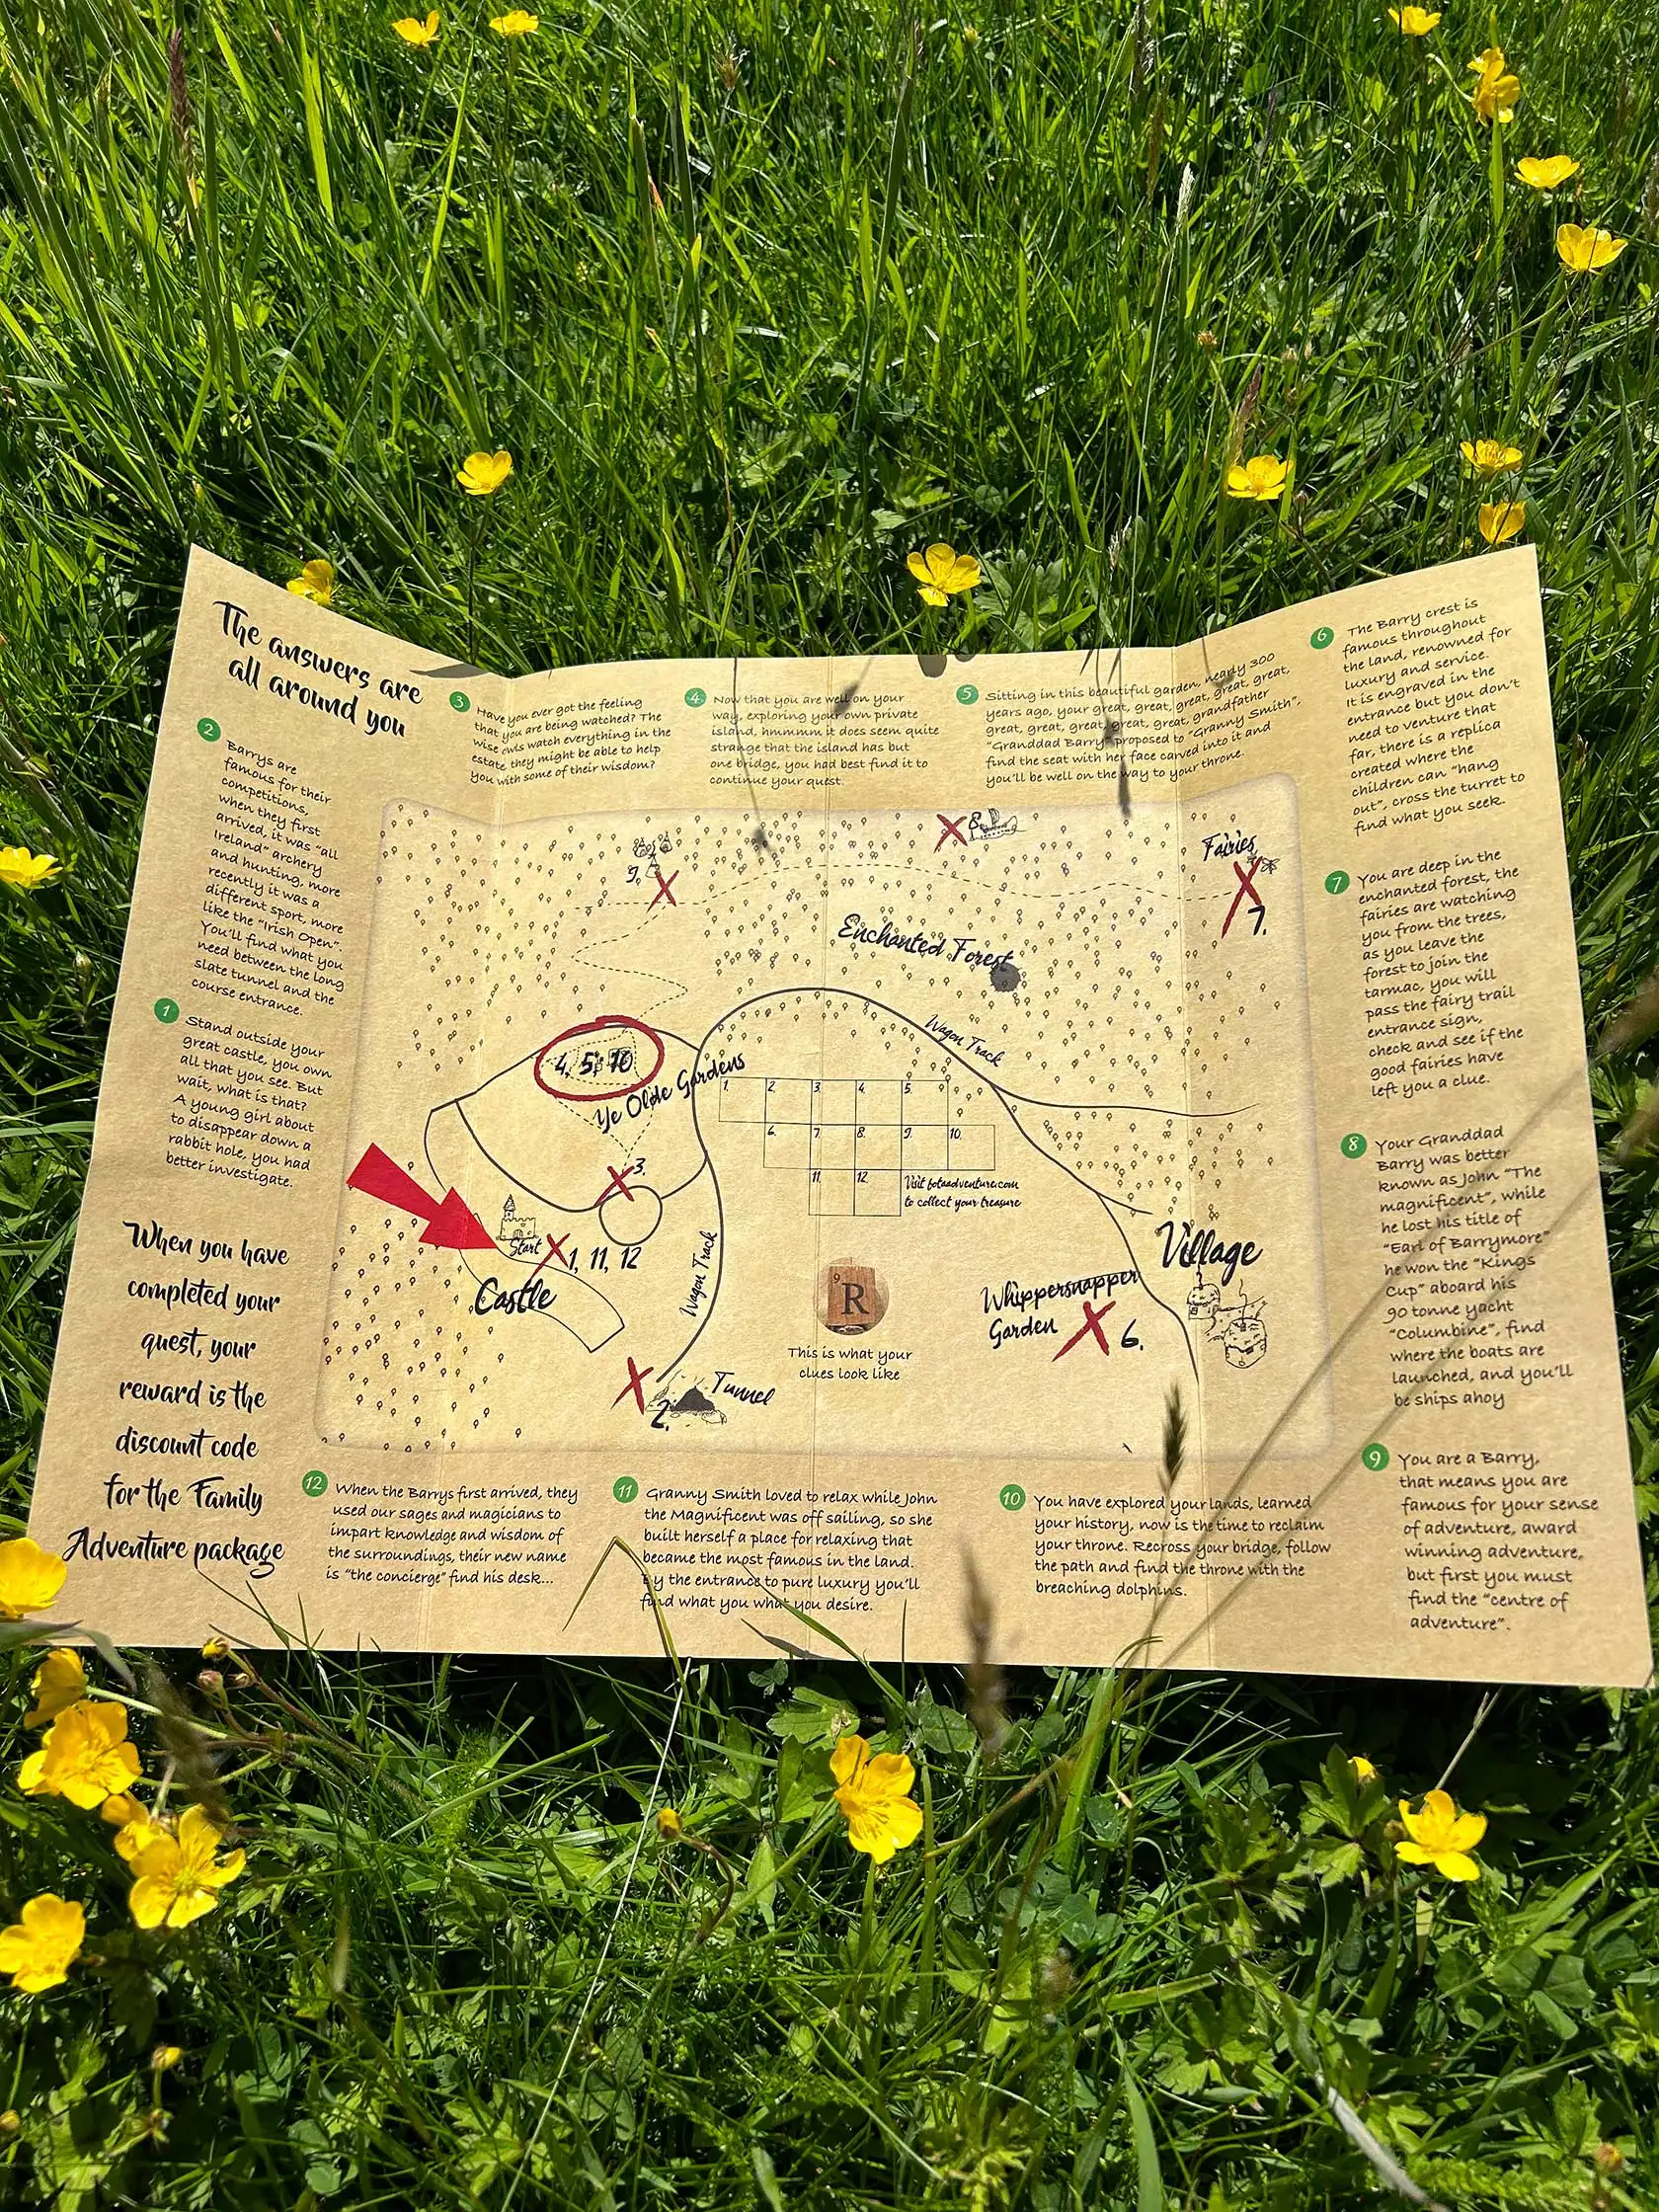 The answers are
all around you
2
Barrys are
famous for their
competitions,
when they first
arrived, it was "all
Ireland" archery
and hunting, more
recently it was a
different sport, more
like the "Irish Open".
You'll find what you
need between the long
slate tunnel and the
course entrance.
1
Stand outside your
great castle, you own
all that you see. But
wait, what is that?
A young girl about
to disappear down a
rabbit hole, you had
better investigate.
When you have
completed your
quest, your
reward is the
discount code
for the Family
Adventure package
3
Have you ever got the feeling
that you are being watched? The
wise owls watch everything in the
estate, they might be able to help
you with some of their wisdom?
4
Now that you are well on your
way, exploring your own private
island, hmmmm it does seem quite
strange that the island has but
one bridge, you had best find it to
continue your quest.
5
Sitting in this beautiful garden, nearly 300
years ago, your great, great, great, great, great,
great, great, great, great, great, grandfather
"Granddad Barry" proposed to "Granny Smith",
find the seat with her face carved into it and
you'll be well on the way to your throne.
6
The Barry crest is
famous throughout
the land, renowned for
luxury and service.
It is engraved in the
entrance but you don't
need to venture that
far, there is a replica
created where the
children can "hang
out", cross the turret to
find what you seek.
7
You are deep in the
enchanted forest, the
fairies are watching
you from the trees,
as you leave the
forest to join the
tarmac, you will
pass the fairy trail
entrance sign,
check and see if the
good fairies have
left you a clue.
8
Your Granddad
Barry was better
known as John "The
magnificent", while
he lost his title of
"Earl of Barrymore"
he won the "Kings
Cup" aboard his
90 tonne yacht
"Columbine", find
where the boats are
launched, and you'll
be ships ahoy
9
You are a Barry,
that means you are
famous for your sense
of adventure, award
winning adventure,
but first you must
find the "centre of
adventure".
9.
8.
Fairies
7.
Enchanted Forest
Wagon Track
4, 5, 10
Ye Olde Gardens
1. 2. 3. 4. 5.
6. 7. 8. 9. 10.
11. 12.
Visit fotaadventure.com
to collect your treasure
3.
Start
1, 11, 12
Castle
Wagon Track
9
R
This is what your
clues look like
Village
Whippersnapper
Garden
6.
Tunnel
2.
12
When the Barrys first arrived, they
used our sages and magicians to
impart knowledge and wisdom of
the surroundings, their new name
is "the concierge" find his desk...
11
Granny Smith loved to relax while John
the Magnificent was off sailing, so she
built herself a place for relaxing that
became the most famous in the land.
By the entrance to pure luxury you'll
find what you what you desire.
10
You have explored your lands, learned
your history, now is the time to reclaim
your throne. Recross your bridge, follow
the path and find the throne with the
breaching dolphins.